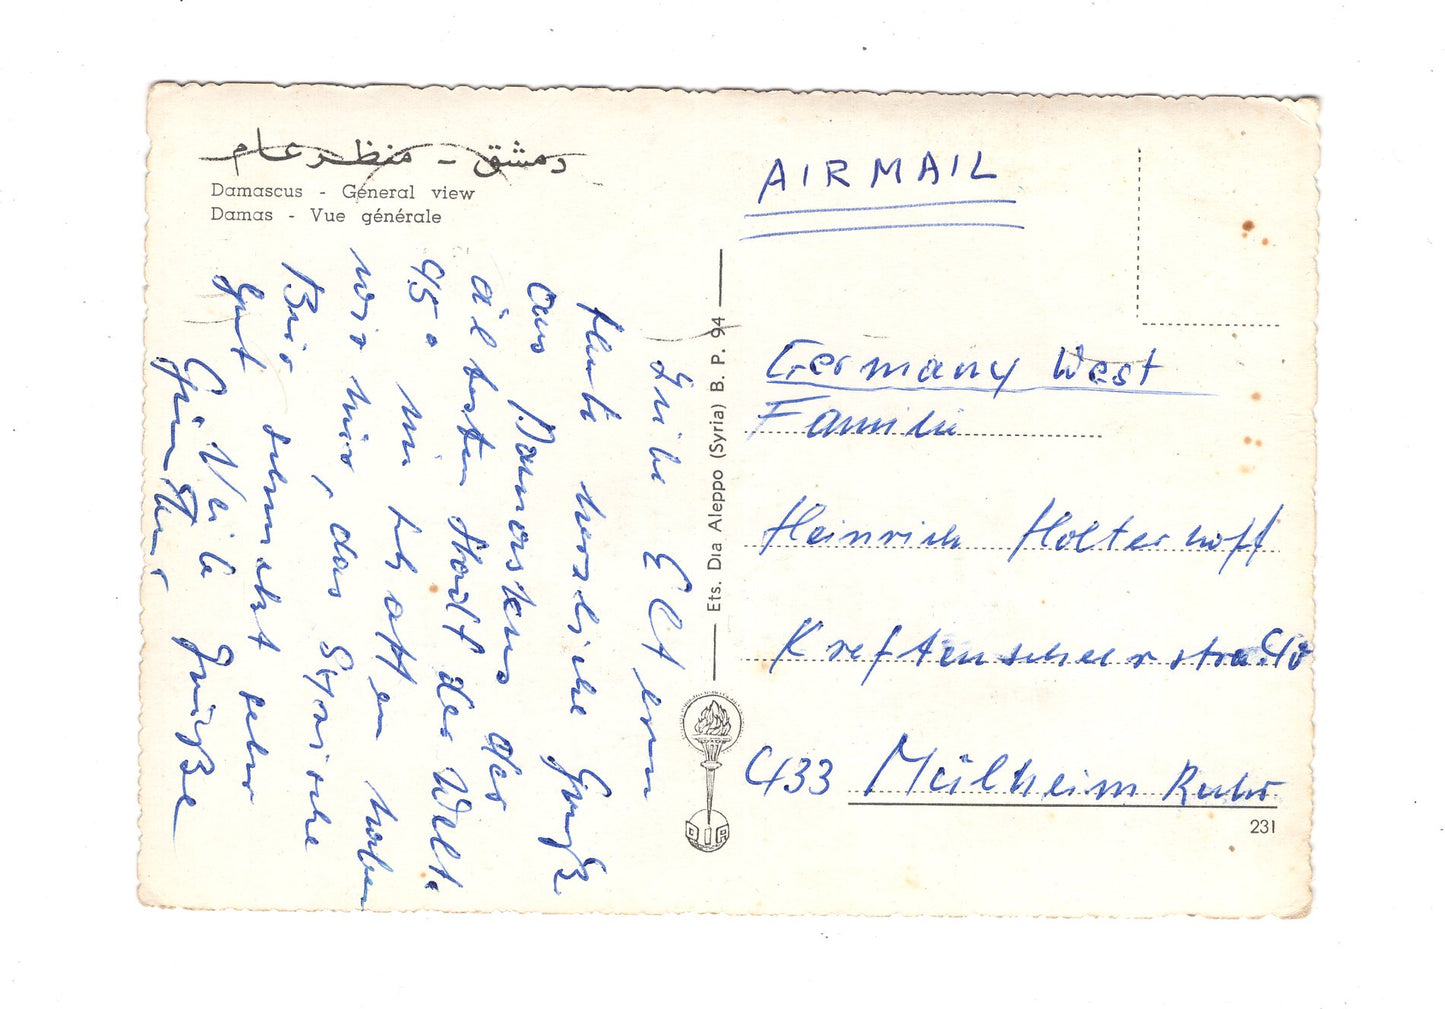 دمشق - منظر عام
Damascus - General view
Damas - Vue générale
Liebe Eltern
Heute herzliche Grüße
aus Damaskus der
ältesten Stadt der Welt.
45° im Schatten haben
wir hier, das Syrische
Bier schmeckt sehr
gut. Viele Grüße
Günther
Ets. Dia Aleppo (Syria) B. P. 94
DIA
AIRMAIL
Germany West
Familie
Heinrich Holterhoff
Kreftenscheerstra. 40
433 Mülheim Ruhr
231